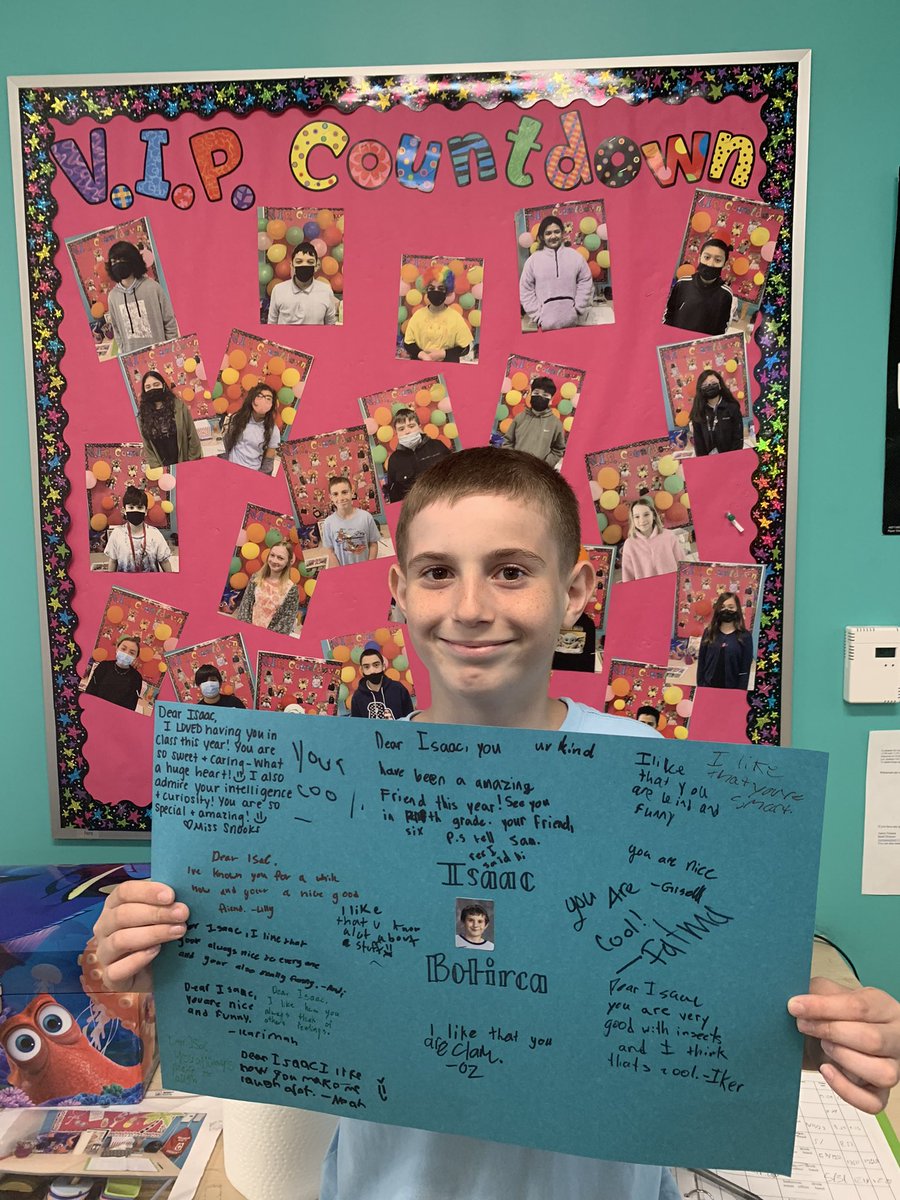 V.I.P. Countdown
Dear Isaac,
I LOVED having you in
class this year! You are
so sweet + caring - What
a huge heart! I also
admire your intelligence
+ curiosity! You are so
special + amazing!
Miss Snooks
Your
cool
Dear Isaac, you
have been a amazing
Friend this year! See you
in th grade. your friend,
six
P.s tell Sam.
said hi
ur kind
I like
that you
are kind and
funny
I like
that you're
smart.
Dear Isac,
Ive known you for a while
now and your a nice good
friend. -Lilly
I like
that u know
alot about
stuff!!
Isaac
Botirca
you are nice
you Are
Cool!!
-Fatma
Isaac, I like that
your always nice to everyone
and your also really funny.
Dear Isaac,
You are nice
and funny.
-Karimah
Dear Isaac,
I like how you
always think of
others feelings.
Dear ISAAC I like
how you make me
laugh alot. -Noah
I like that you
are
-OZ
Dear Isaac
you are very
good with insects
and I think
thats cool. -Iker